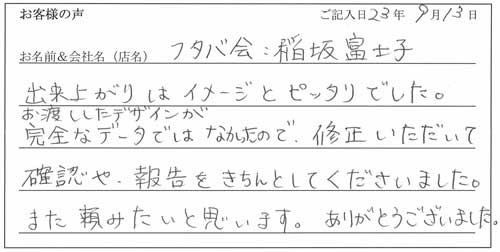 お客様の声 ご記入日23年 9月13日
お名前&会社名（店名） フタバ会：稲坂富士子
出来上がりはイメージとピッタリでした。
お渡ししたデザインが
完全なデータではなかったので、修正いただいて
確認や、報告をきちんとしてくださいました。
また頼みたいと思います。ありがとうございました。